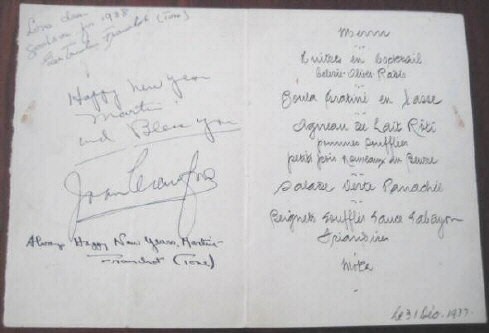 Happy New Year
Martin
and Bless you
Joan Crawford
Always Happy New Years, Martin-
Franchot (Tone)
Menu
en Cocktail
Céleri-Olives-Radis
Gratiné en Tasse
Agneau de Lait Rôti
pommes soufflées
petits pois nouveaux au Beurre
Salade Verte Panachée
Beignets Soufflés Sauce Sabayon
Friandises
Moka
le 31 Déc. 1937